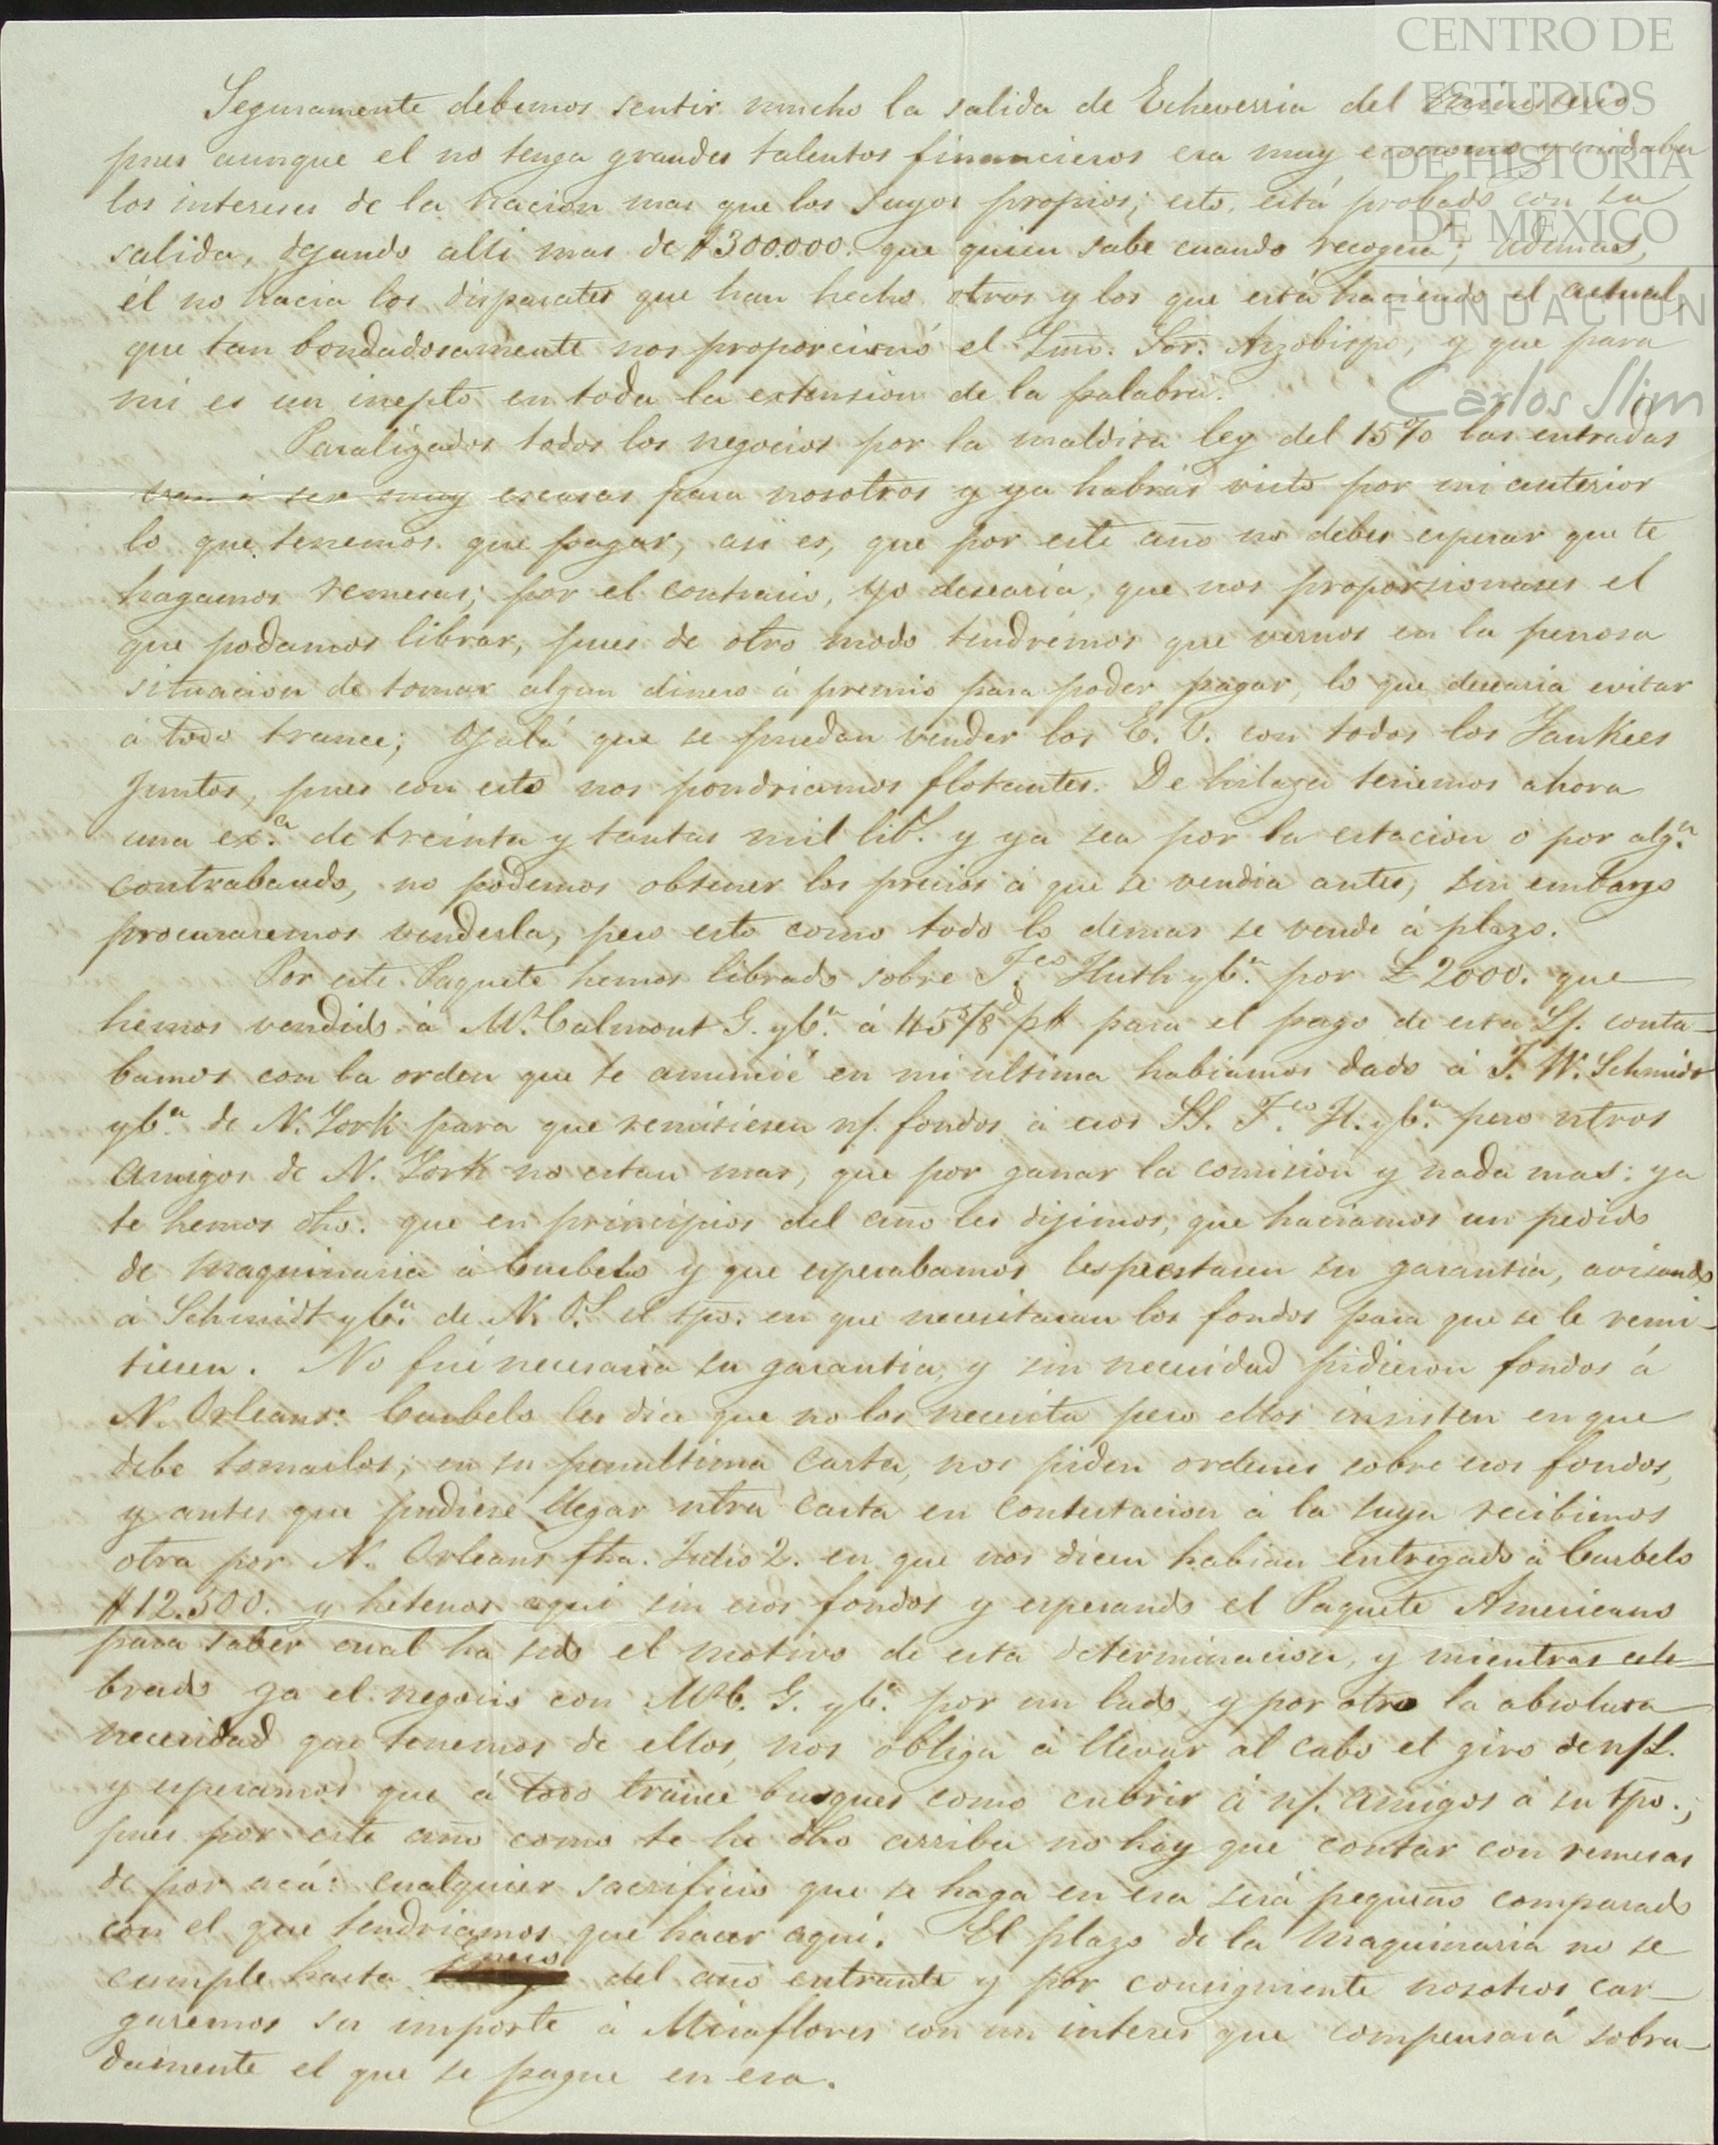 CENTRO DE
ESTUDIOS
DE HISTORIA
DE MEXICO
FUNDACION
Carlos Slim
Seguramente debemos sentir mucho la salida de Echeverria del Ministerio
pues aunque el no tenga grandes talentos financieros era muy economo y cuidaba
los intereses de la nacion mas que los suyos propios; esto, está probado con su
salida, dejando alli mas de $300.000. que quien sabe cuando recogerá; ademas,
él no hacia los disparates que han hecho otros y los que está haciendo el actual,
que tan bondadosamente nos proporcionó el Ymo. Sor. Arzobispo, y que para
mi es un inepto en toda la extension de la palabra.
Paralizados todos los negocios por la maldita ley del 15% las entradas
van á ser muy escasas para nosotros y ya habrás visto por mi anterior
lo que tenemos que pagar, asi es, que por este año no debes esperar que te
hagamos remesas; por el contrario, yo desearia, que nos proporsionases el
que podamos librar, pues de otro modo tendrémos que vernos en la penosa
situacion de tomar algun dinero á premio para poder pagar, lo que desearia evitar
á todo trance; Ojalá que se puedan vender los E. U. con todos los Yankees
juntos, pues con esto nos pondriamos flotantes. De hilaza tenemos ahora
una exa. de treinta y tantas mil libs. y ya sea por la estacion o por algn.
contrabando, no podemos obtener los precios á que se vendia antes, sin embargo
procuraremos venderla, pero esto como todo lo demas se vende á plazo.
Por este Paquete hemos librado sobre Fco. Huth y Ca. por £2000. que
hemos vendido á Mc. Calmont G. y Ca. á 45 5/8 d p$ para el pago de esta L/. conta-
bamos con la orden que te anuncié en mi ultima habiamos dado á J. W. Schmidt
y Ca. de N. York para que remitiesen n/. fondos á esos SS. Fco. H. y Ca. pero ntros
amigos de N. York no estan mas, que por ganar la comision y nada mas: ya
te hemos dho. que en principios del año les dijimos, que haciamos un pedido
de maquinaria á Carbelo y que esperabamos les prestasen su garantia, avisando
á Schmidt y Ca. de N. Os. el tpo. en que necesitaran los fondos para que se le remi-
tiesen. No fué necesaria su garantia, y sin necesidad pidieron fondos á
N. Orleans: Carbelo les dice que no los necesita pero ellos insisten en que
debe tomarlos; en su penultima carta, nos piden ordenes sobre esos fondos,
y antes que pudiese llegar ntra carta en contestacion á la suya recibimos
otra por N. Orleans fha. Julio 2. en que nos dicen habian entregado á Carbelo
$12.500. y hetenos aqui sin esos fondos y esperando el Paquete Americano
para saber cual ha sido el motivo de esta determinacion, y mientras cele-
brado ya el negocio con McC. G. y Ca. por un lado, y por otro la absoluta
necesidad que tenemos de ellos, nos obliga á llevar al cabo el giro de n/L.
y esperamos que á todo trance busques como cubrir á n/. amigos á su tpo.;
pues por este año como te he dho arriba no hay que contar con remesas
de por acá: cualquier sacrificio que se haga en esa será pequeño comparado
con el que tendriamos que hacer aqui. El plazo de la Maquinaria no se
cumple hasta Enero del año entrante y por consiguiente nosotros car-
garemos su importe á Miraflores con un interes que compensará sobra-
damente el que se pague en esa.